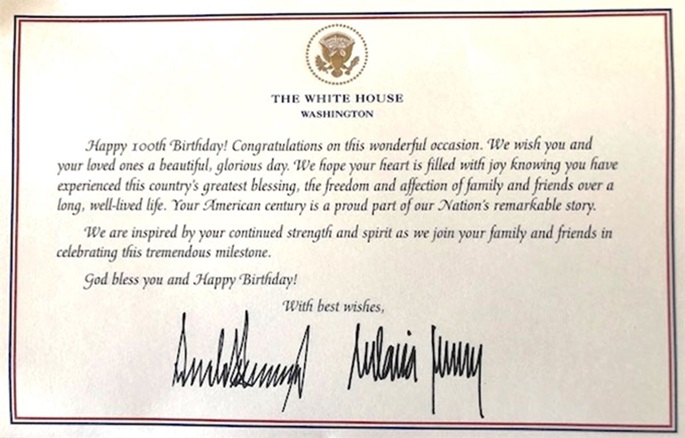 THE WHITE HOUSE
WASHINGTON
Happy 100th Birthday! Congratulations on this wonderful occasion. We wish you and
your loved ones a beautiful, glorious day. We hope your heart is filled with joy knowing you have
experienced this country's greatest blessing, the freedom and affection of family and friends over a
long, well-lived life. Your American century is a proud part of our Nation's remarkable story.
We are inspired by your continued strength and spirit as we join your family and friends in
celebrating this tremendous milestone.
God bless you and Happy Birthday!
With best wishes,